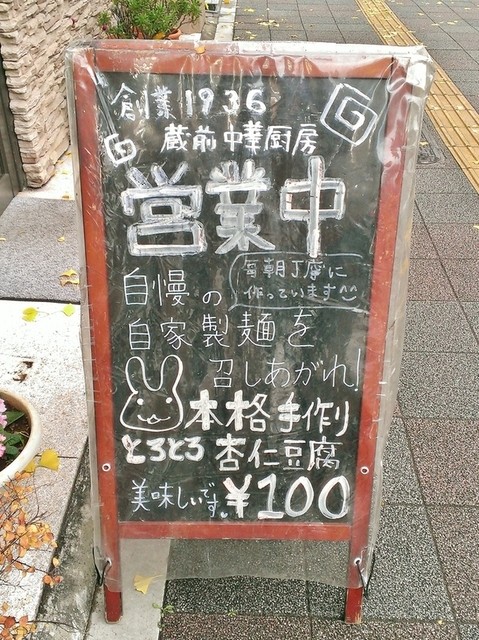 創業1936
蔵前中華厨房
営業中
毎朝丁寧に
作っています
自慢の
自家製麺を
召しあがれ!
本格手作り
とろとろ杏仁豆腐
美味しいです。¥100